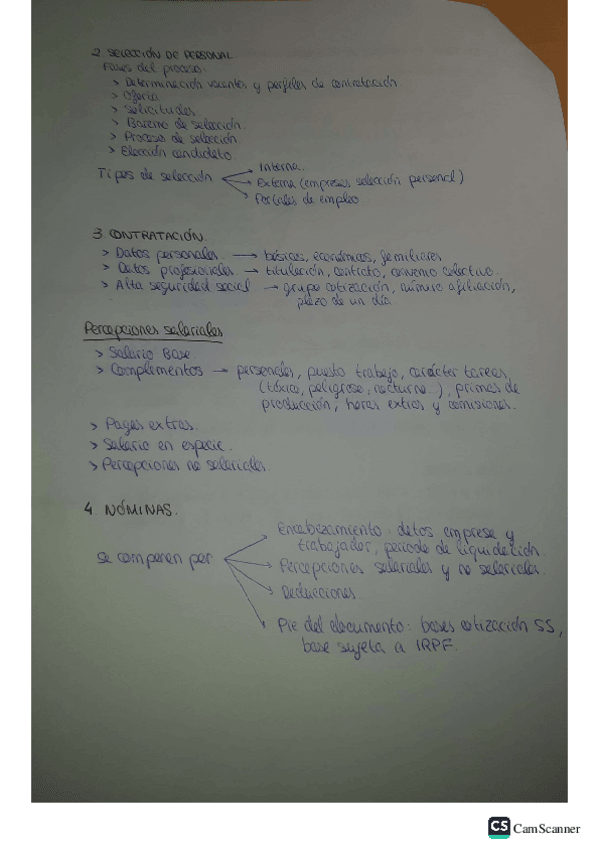 2. SELECCIÓN DE PERSONAL
Fases del proceso:
> Determinación vacantes y perfiles de contratación
> Oferta
> Solicitudes.
> Baremo de selección.
> Proceso de selección
> Elección candidato.
Tipos de selección → Interna.
→ Externa (empresas selección personal)
→ Portales de empleo
3. CONTRATACIÓN.
> Datos personales. → básicos, económicos, familiares
> Datos profesionales → titulación, contrato, convenio colectivo.
> Alta seguridad social → grupo cotización, número afiliación,
plazo de un día.
Percepciones salariales
> Salario Base.
> Complementos → personales, puesto trabajo, carácter tareas,
(tóxica, peligrosa, nocturna...), primas de
producción, horas extras y comisiones.
> Pagas extras.
> Salario en especie.
> Percepciones no salariales.
4. NÓMINAS.
Se componen por → Encabezamiento: datos empresa y
trabajador, periodo de liquidación.
→ Percepciones salariales y no salariales.
→ Deducciones
→ Pie del documento: bases cotización SS,
base sujeta a IRPF.
CS CamScanner